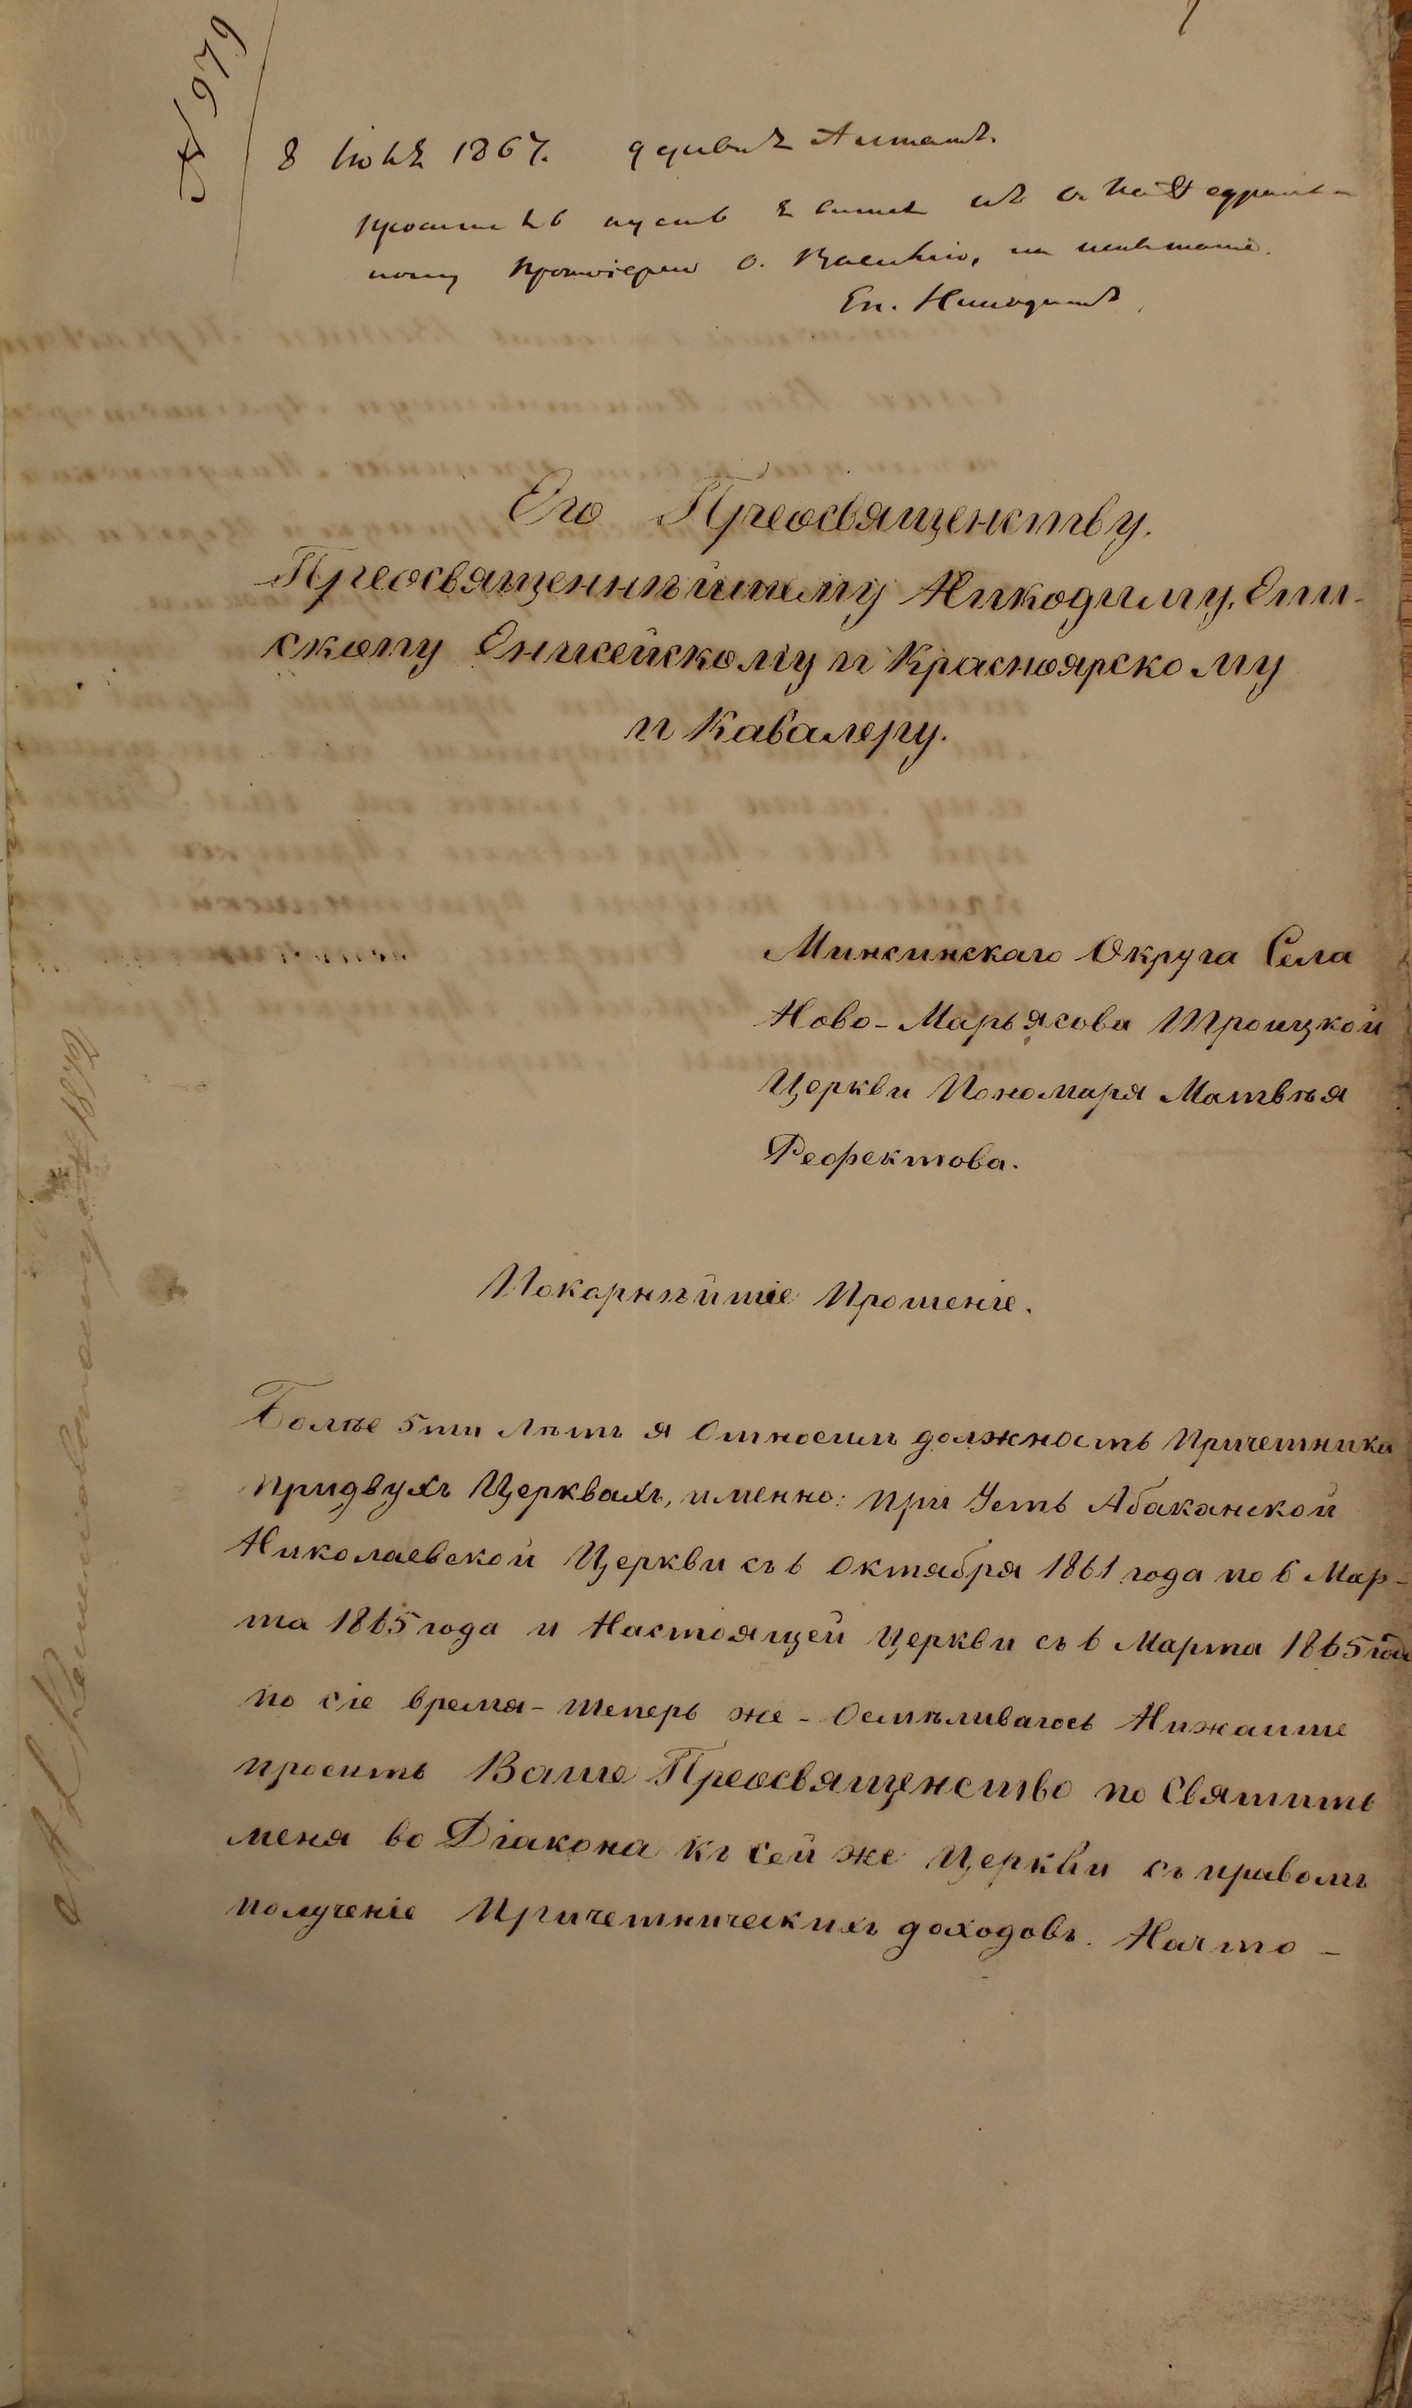 № 979
8 Іюля 1867.
Проситель пусть
ному протоіерею о. Василію, на испытаніе.
Еп. Никодимъ
Его Преосвященству.
Преосвященнѣйшему Никодиму, Епи-
скопу Енисейскому и Красноярскому
и Кавалеру.
Минсинскаго Округа Села
Ново-Марьясова Троицкой
Церкви Пономаря Матвѣя
Рефектова.
Покарнѣйшіе Прошеніе.
Болѣе 5ти Лѣтъ я Относилъ должность Причетника
придвухъ Церквахъ, именно: при Усть Абаканской
Николаевской Церкви съ 6 Октября 1861 года по 6 Мар-
та 1865 года и Настоящей Церкви съ 6 Марта 1865 года
по сіе время - теперь же - Осмѣливаюсь Нижаише
просить Ваше Преосвященство по Святить
меня во Діакона къ сей же Церкви съ правомъ
полученіе Причетническихъ доходовъ. Начто -